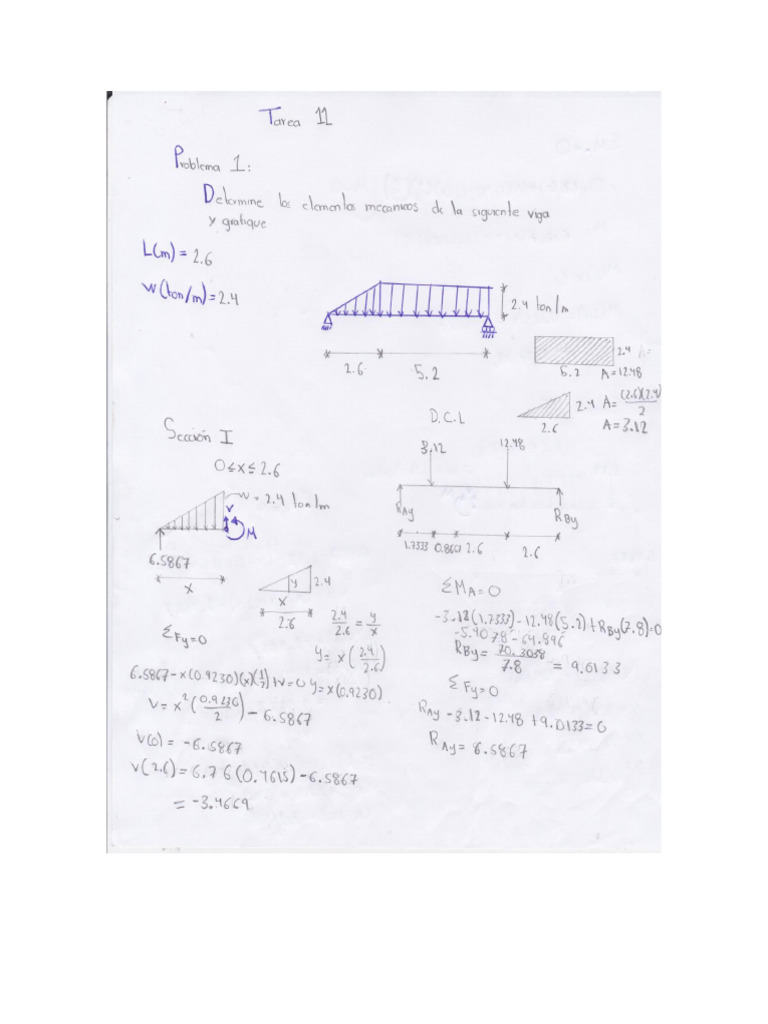 Tarea 11
Problema 1:
Determine los elementos mecanicos de la siguiente viga
y grafique
L(m) = 2.6
W(ton/m) = 2.4
2.4 ton/m
2.6
5.2
2.4 A=
5.2 A=12.48
2.4 A= (2.6)(2.4)/2
2.6 A=3.12
D.C.L
3.12
12.48
RAy
RBy
1.7333 0.8667 2.6 2.6
Sección I
0≤x≤2.6
w = 2.4 ton/m
V
M
6.5867
x
y 2.4
x
2.6
2.4/2.6 = y/x
y= x(2.4/2.6)
y=x(0.9230)
ΣFy=0
6.5867-x(0.9230)(x)(1/2)+V=0
V= x²(0.9230/2) - 6.5867
V(0) = -6.5867
V(2.6) = 6.76(0.4615)-6.5867
= -3.4669
ΣMA=0
-3.12(1.7333)-12.48(5.2)+RBy(7.8)=0
-5.4078-64.896
RBy= 70.3038/7.8 = 9.0133
ΣFy=0
RAy-3.12-12.48+9.0133=0
RAy= 6.5867